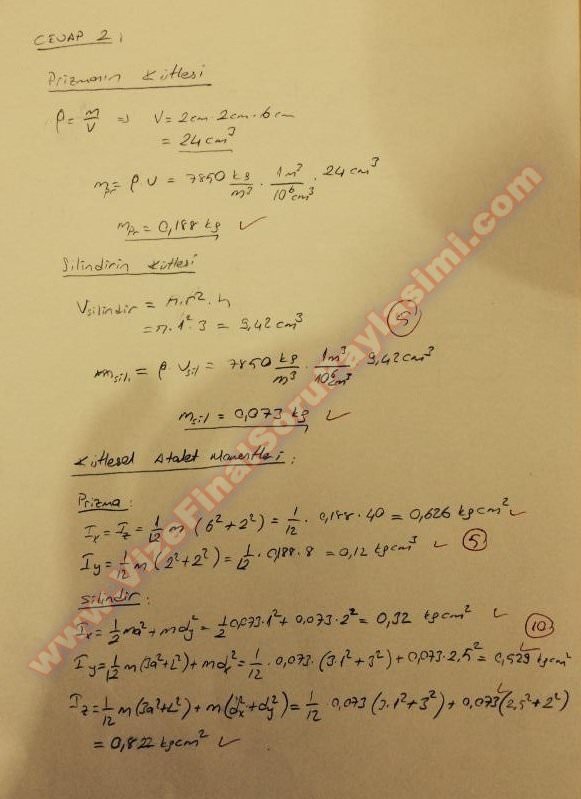 CEVAP 2:
Prizmanın Kütlesi
ρ = m/V ⇒ V = 2cm · 2cm · 6cm
= 24cm³
m_pr = ρ · V = 7850 kg/m³ · 1m³/10⁶cm³ · 24cm³
m_pr = 0,188 kg ✓
Silindirin Kütlesi
V_silindir = π·r²·h
= π·1²·3 = 9,42 cm³
5
m_sil. = ρ · V_sil = 7850 kg/m³ · 1m³/10⁶cm³ · 9,42cm³
m_sil = 0,073 kg ✓
Kütlesel Atalet Momentleri:
Prizma:
I_x = I_z = 1/12 m (6² + 2²) = 1/12 · 0,188 · 40 = 0,626 kgcm² ✓
I_y = 1/12 m (2² + 2²) = 1/12 · 0,188 · 8 = 0,12 kgcm³ ✓ 5
Silindir:
I_x = 1/2 ma² + md_y² = 1/2 0,073·1² + 0,073·2² = 0,32 kgcm² ✓ 10
I_y = 1/12 m(3a²+L²) + md_x² = 1/12 · 0,073 · (3·1² + 3²) + 0,073·2,5² = 0,529 kgcm² ✓
I_z = 1/12 m(3a²+L²) + m(d_x²+d_y²) = 1/12 · 0,073 (3·1² + 3²) + 0,073(2,5² + 2²) ✓
= 0,822 kgcm² ✓
www.VizeFinalSoruPaylasimi.com